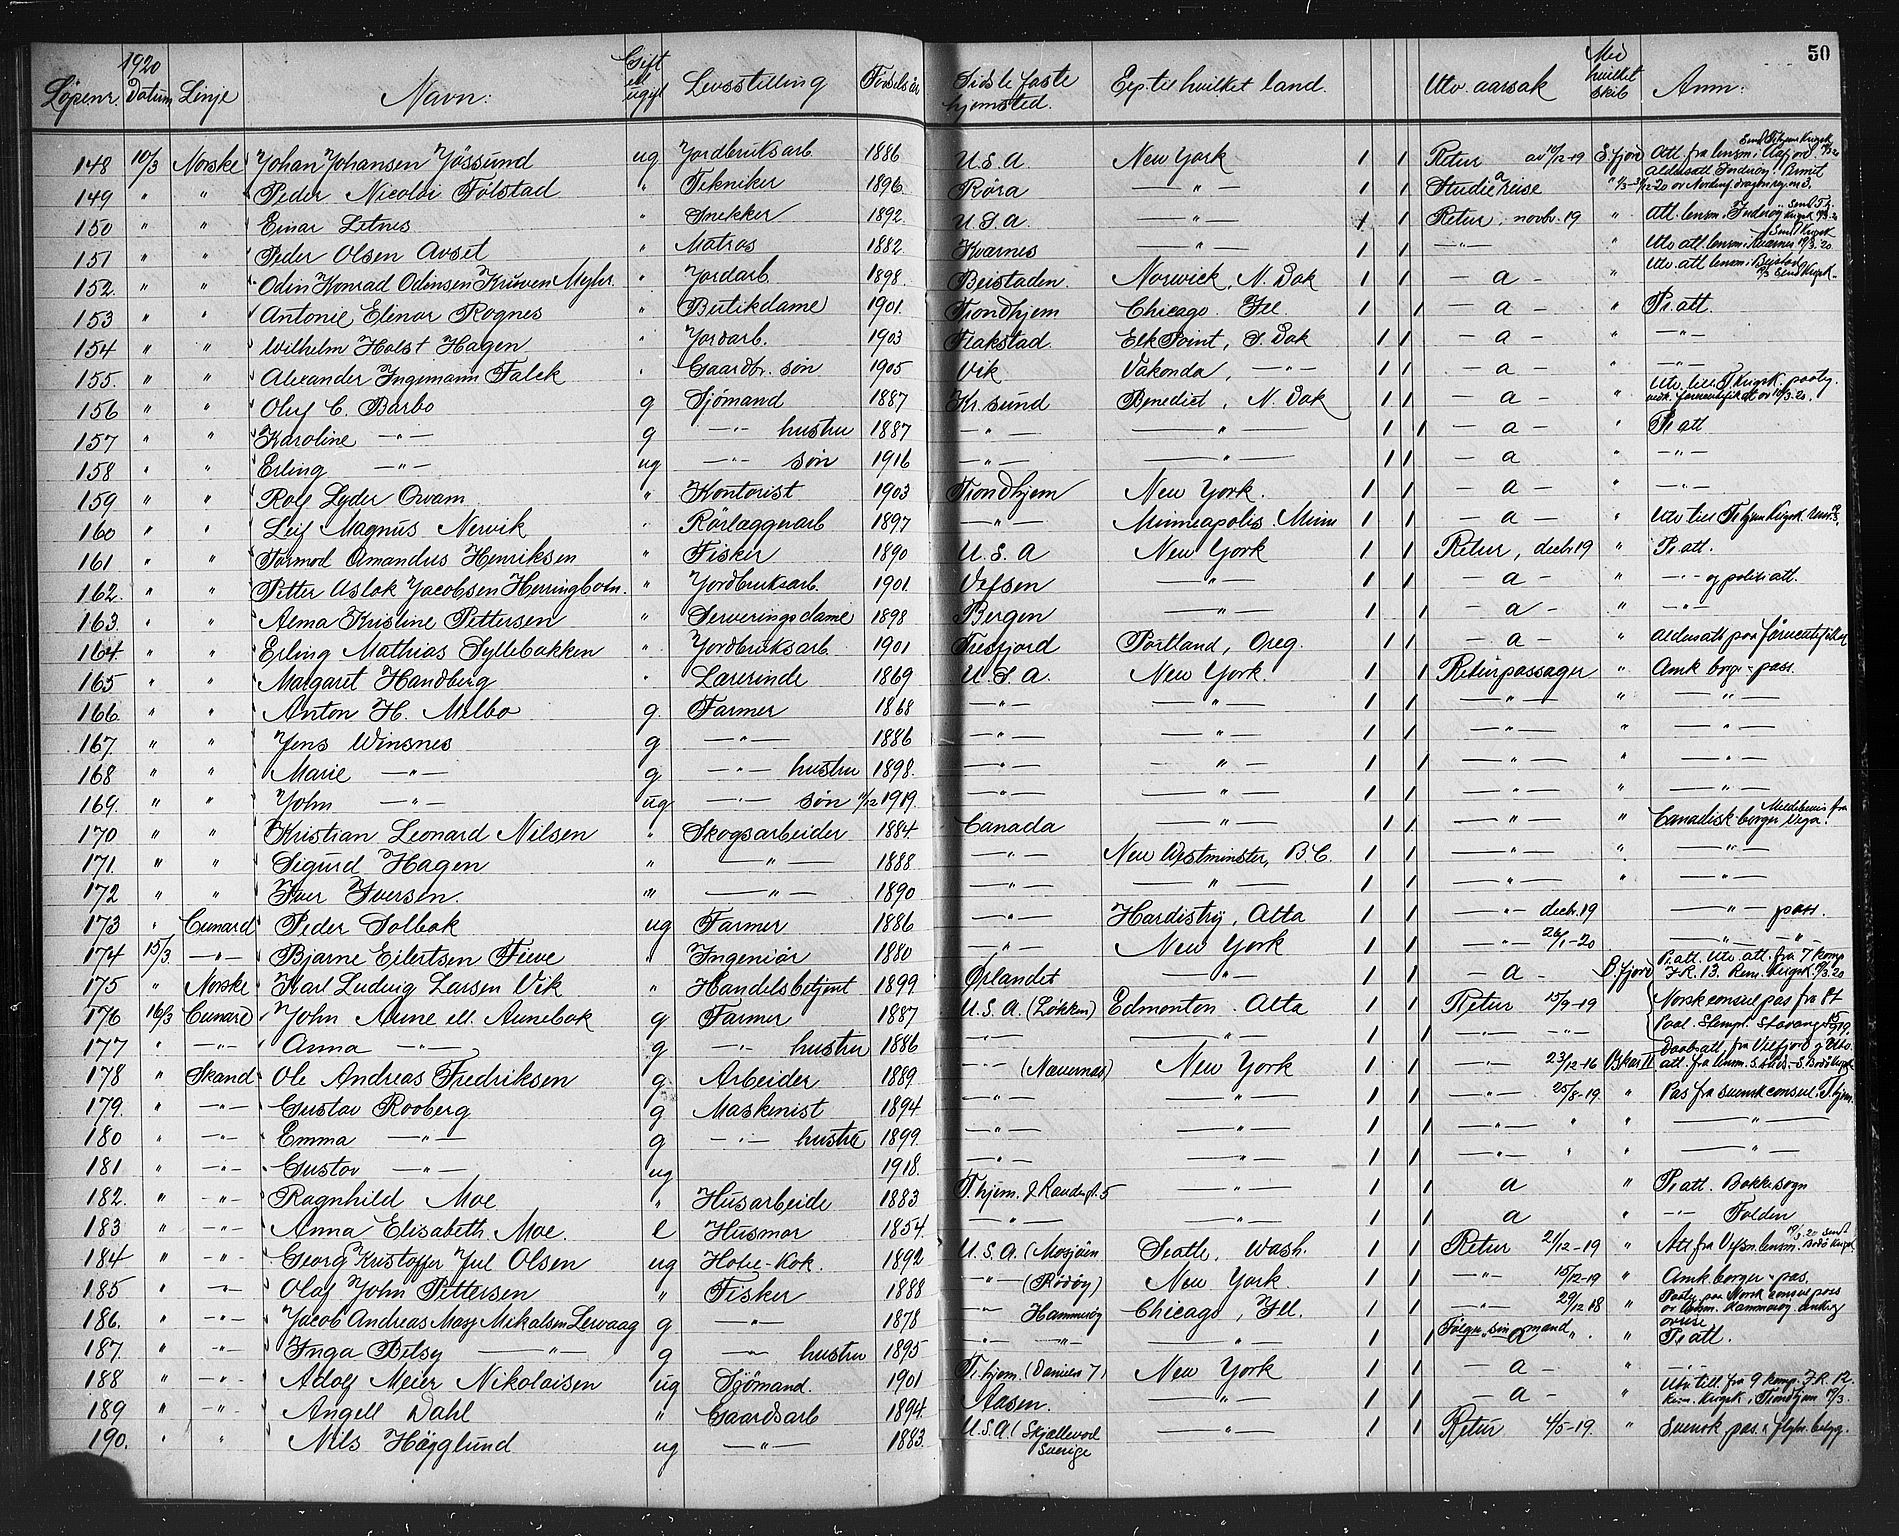 50
Løpenr. 1920 Datum Linje Navn: Gift el ugift Livsstilling Fødselsår Sidste faste hjemsted. Exp. til hvilket land. Utv. aarsak Med hvilket skib Anm:
148 10/3 Norske Johan Johansen Jössund ug Jordbruksarb 1886 U.S.A New York 1 1 Retur av 10/12-19 S.fjord Att fra lensm i Aafjord
149 " " Peder Nicolai Folstad " Tekniker 1896 Röra —"— 1 1 Studiereise "
150 " " Einar Letnes " Snekker 1892 U.S.A. —"— 1 1 Retur, novbr. 19 " Att. lensm. Inderöy
151 " " Peder Olsen Avset " Matros 1882 Kvarnes —"— 1 1 —"— " Utv att. lensm. i Kvarnes 10/3.20
152. " " Odin Konrad Odinsen Myhr " Jordarb. 1898. Beistaden. Norwick, N. Dak 1 1 — a — " Utv. att lensm. i Beistad
153 " " Antonie Elenor Rognes " Butikdame 1901. Trondhjem Chicago. Ill. 1 1 — a — " Pr. att.
154 " " Wilhelm Holst Hagen " Jordarb. 1903 Flakstad. Elk Point, S. Dak 1 1 — a — " —"—
155. " " Alexander Ingemann Falck " Gaardbr. søn 1905 Vik Vakonda, —"— 1 1 — a — " —"—
156 " " Oluf C. Barbo g Sjömand 1887 Kr.sund Benedict, N. Dak 1 1 — a — "
157 " " Karoline —"— g —"— hustru 1887 —"— —"— 1 1 — a — " Pr att
158 " " Erling —"— ug —"— søn 1916 —"— —"— 1 1 — a " —"—
159 " " Rolf Lyder Qvam " Kontorist 1903 Trondhjem New York. 1 1 — a — " —"—
160 " " Leif Magnus Nervik " Rörlæggerarb 1897 —"— Minneapolis. Minn 1 1 — a — "
161 " " Tormod Amandus Henriksen " Fisker 1890 U.S.A New York 1 1 Retur, decb. 19 " Pr att.
162. " " Petter Aslak Jacobsen Herringbotn. " Jordbruksarb. 1901. Vefsen —"— 1 1 — a — " —"— og politi att.
163 " " Alma Kristine Pettersen " Serveringsdame 1898 Bergen —"— 1 1 — a — " —"—
164. " " Erling Mathias Syllebakken " Jordbruksarb 1901 Tresfjord Portland, Oreg. 1 1 — a — "
165 " " Margaret Handberg " Lærerinde 1869 U.S.A. New York. 1 1 Returpassager " Amk borger-pass.
166 " " Anton H. Melbo g. Farmer 1868 —"— —"— 1 1 —"— " —"—
167. " " Jens Winsnes g —"— 1886 —"— —"— 1 1 —"— " —"—
168 " " Marie —"— g —"— hustru 1898. —"— —"— 1 1 —"— " —"—
169. " " John —"— ug —"— søn 11/12 1919. —"— —"— 1 1 —"— " —"—
170 " " Kristian Leonard Nilsen " Skogsarbeider 1884 Canada —"— 1 1 —"— " Canadisk borger Meldebevis fra Vega.
171. " " Sigurd Hagen " —"— 1888 —"— New Westminster, B.C. 1 1 —"— " —"—
172 " " Iver Iversen. " —"— 1890 —"— —"— 1 1 —"— " —"—
173 " Cunard Peder Solbak ug Farmer 1886 —"— Hardisty, Alta 1 1 —"— decb. 19 —"— pass.
174 15/3 —"— Bjarne Eilertsen Five " Ingeniör 1880 —"— New York 1 1 —"— 26/1-20 —"— "
175 " Norske Karl Ludvig Larsen Vik " Handelsbetjent 1899 Ørlandet —"— 1 1 — a — B.fjord Pr. att. Utv. att. fra 7 komp I.R. 13.
176 16/3 Cunard John Aune ell. Aunebak g Farmer 1887 U.S.A. (Løkken) Edmonton. Alta 1 1 Retur 15/9-19 Norsk consul pas fra St Paal.
177 " —"— Anna —"— g —"— hustru 1886 —"— —"— 1 1 —"— —"—
178 " Skand Ole Andreas Fredriksen g Arbeider 1889 —"— (Nævernes) New York 1 1 —"— 23/12-16 Oskar II Daabsatt. fra Velfjord
179. " —"— Gustav Rooberg g Maskinist 1894 —"— —"— 1 1 —"— 25/8-19 " Pas fra svensk consul. T.hjem.
180 " —"— Emma —"— g —"— hustru 1899. —"— —"— 1 1 —"— " " —"—
181 " —"— Gustav —"— ug 1918. —"— —"— 1 1 —"— " " —"—
182. " —"— Ragnhild Moe " Husarbeide 1883 T.hjem. —"— 1 1 a " Pr att. Bakke sogn
183 " —"— Anna Elisabeth Moe. e Husmor 1854. —"— —"— 1 1 a " —"— Folden
184 " —"— Georg Kristoffer Jul Olsen ug Hotel-Kok. 1892 U.S.A. (Mosjöen Seatle, Wash. 1 1 Retur 21/12-19 " Att fra Vefsn lensm.
185. " —"— Olaf John Pettersen " Fisker 1888 —"— (Rödöy) New York. 1 1 —"— 15/12-19 " Amk borger-pas.
186. " —"— Jacob Andreas May Mikalsen Lervaag g —"— 1878 —"— Hammeröy Chicago, Ill. 1 1 —"— 29/12 18 "
187. " —"— Inga Betsy —"— g —"— hustru 1895 —"— —"— —"— 1 1 Følger sin mand " Pr att.
188 " —"— Adolf Meier Nikolaisen ug Sjömand. 1901 Tr.hjem. New York 1 1 — a — " —"—
189 " —"— Angell Dahl " Gaardsarb 1894. Aasen. —"— 1 1 — a — " Utv. till. fra 9 komp. I.R. 12.
190. " " Nils Höggglund ug —"— 1883. U.S.A (Skjellevod Sverige —"— 1 1 Retur 4/5-19. " Svensk pas.